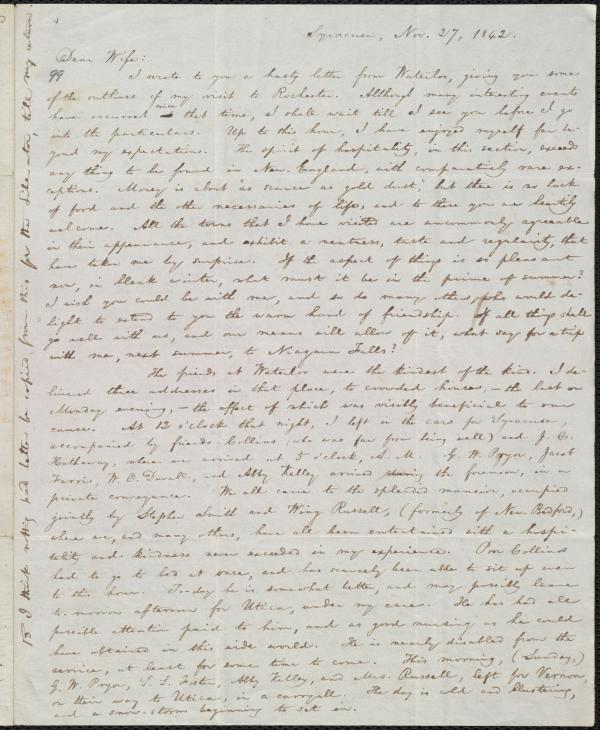 Syracuse, Nov. 27, 1842.
Dear Wife:
99 I wrote to you a hasty letter from Waterloo, giving you some
of the outlines of my visit to Rochester. Although many interesting events
have occurred since that time, I shall wait till I see you before I go
into the particulars. Up to this hour, I have enjoyed myself far be-
yond my expectations. The spirit of hospitality, in this section, exceeds
any thing to be found in New-England, with comparatively rare ex-
ceptions. Money is about "as scarce as gold dust," but there is no lack
of food and the other necessaries of life, and to these you are heartily
welcome. All the towns that I have visited are uncommonly agreeable
in their appearance, and exhibit a neatness, taste and regularity, that
have taken me by surprise. If the aspect of things is so pleasant
now, in bleak winter, what must it be in the prime of summer?
I wish you could be with me, and so do many others, who would de-
light to extend to you the warm hand of friendship. If all things shall
go well with us, and our means will allow of it, what say for a trip
with me, next summer, to Niagara Falls?
The friends at Waterloo were the kindest of the kind. I de-
livered three addresses in that place, to crowded houses, – the last on
Monday evening, – the effect of which was visibly beneficial to our
cause. At 12 o'clock that night, I left in the cars for Syracuse,
accompanied by friends Collins (who was far from being well) and J. C.
Hathaway, where we arrived at 5 o'clock, A. M. G. W. Pryor, Jacob
Farris, W. O. Duvall, and Abby Kelley arrived during the forenoon, in a
private conveyance. We all came to the splendid mansion, occupied
jointly by Stephen Smith and Wing Russell, (formerly of New-Bedford,)
where we, and many others, have all been entertained with a hospi-
tality and kindness never exceeded in my experience. Poor Collins
had to go to bed at once, and has scarcely been able to sit up even
to this hour. To-day he is somewhat better, and may possibly leave
to-morrow afternoon for Utica, under my care. He has had all
possible attention paid to him, and as good nursing as he could
have obtained in this wide world. He is nearly disabled from the
service, at least for some time to come. This morning, (Sunday,)
G. W. Pryor, S. S. Foster, Abby Kelley, and Mrs. Russell, left for Vernon,
on their way to Utica, in a carryall. The day is cold and blustering,
and a snow-storm beginning to set in.
I think nothing had better be copied, from this for the Liberator, till my return.